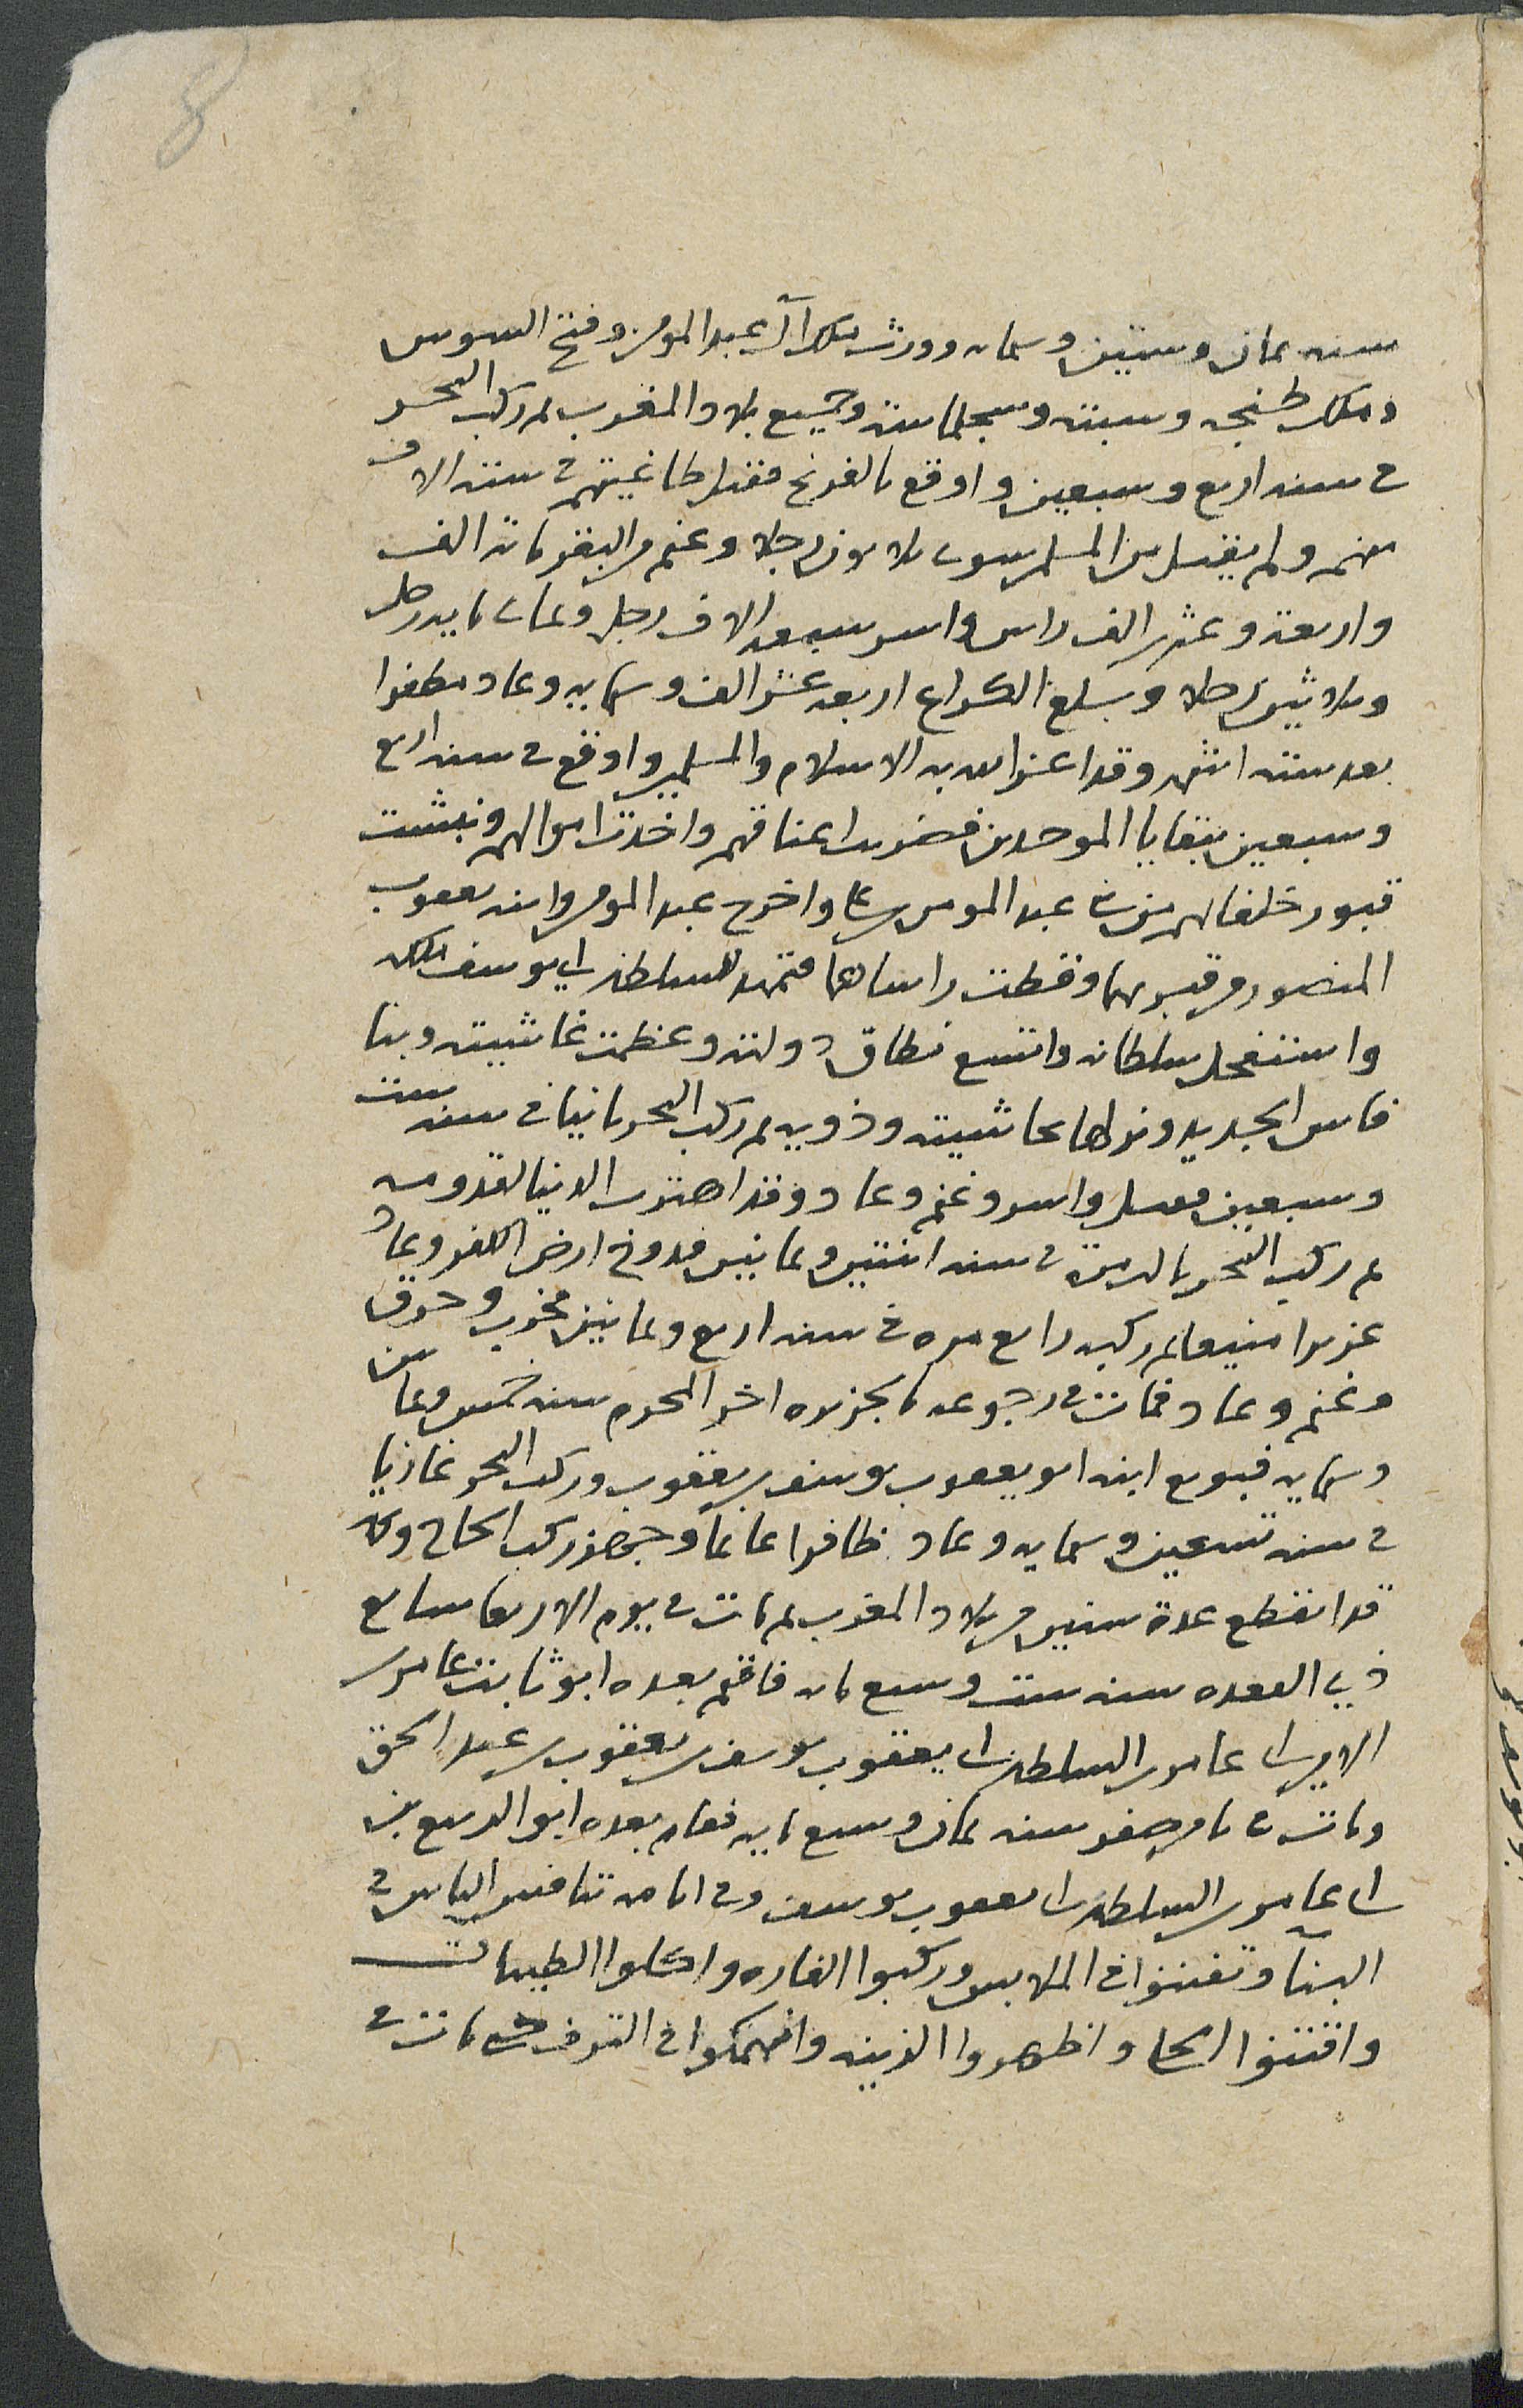 8
سنه ثمان وستين وستمايه وورث ملك آل عبد المومن وفتح السوس
وملك طنجه وسبته وسجلماسه وجميع بلاد المغرب ثم ركب البحر
في سنه اربع وسبعين واوقع بالفرنج فقتل طاغيتهم في سته الاف
منهم ولم يقتل من المسلمين سوى ثلاثون رجلا وغنم من البقر مائة الف
واربعة وعشرين الف راس واسر سبعه الاف رجل وثمان مايه رجل
وثلاثين رجلا وبلغ الكراع اربعه عشر الف وستمايه وعاد مظفرا
بعد سته اشهر وقد اعز الله به الاسلام والمسلمين واوقع في سنه اربع
وسبعين ببقايا الموحدين فضربت اعناقهم واخذت اموالهم ونبشت
قبور خلفائهم من بني عبد المومن بن علي واخرج عبد المومن وابنه يعقوب
المنصور من قبريهما وقطعت راساهما فتمهد للسلطان ابي يوسف ملكه
واستفحل سلطانه واتسع نطاق دولته وعظمت غاشيته وبنا
فاس الجديد ونزلها بحاشيته وذويه ثم ركب البحر ثانيا في سنه ست
وسبعين فقتل واسر وغنم وعاد وقد اهتزت الدنيا لقدومه
ثم ركب البحر ثالث مرة في سنه اثنتين وثمانين فدوخ ارض الكفر وعاد
عزيزا منيعا ثم ركبه رابع مره في سنه اربع وثمانين فخرب وحرق
وغنم وعاد فمات في رجوعه بالجزيره اخر المحرم سنه خمس وثمانين
وستمايه فبويع ابنه ابو يعقوب يوسف بن يعقوب وركب البحر غازيا
في سنه تسعين وستمايه وعاد ظافرا غانما وجهز ركب الحاج وكان
قد انقطع عدة سنين من بلاد المغرب ثم مات في يوم الاربعا سابع
ذي القعده سنه ست وسبع مايه فاقيم بعده ابو ثابت عامر بن
الامير ابي عامر بن السلطان ابي يعقوب يوسف بن يعقوب بن عبد الحق
ومات في ثامن صفر سنه ثمان وسبع مايه فقام بعده ابو الربيع بن
ابي عامر بن السلطان ابي يعقوب يوسف وفي ايامه تنافس الناس في
البنآ وتفننوا في الملابس وركبوا الفاره واكلوا الطيبات
واقتنوا الحلي واظهروا الزينه وانهمكوا في الترف حتى مات في